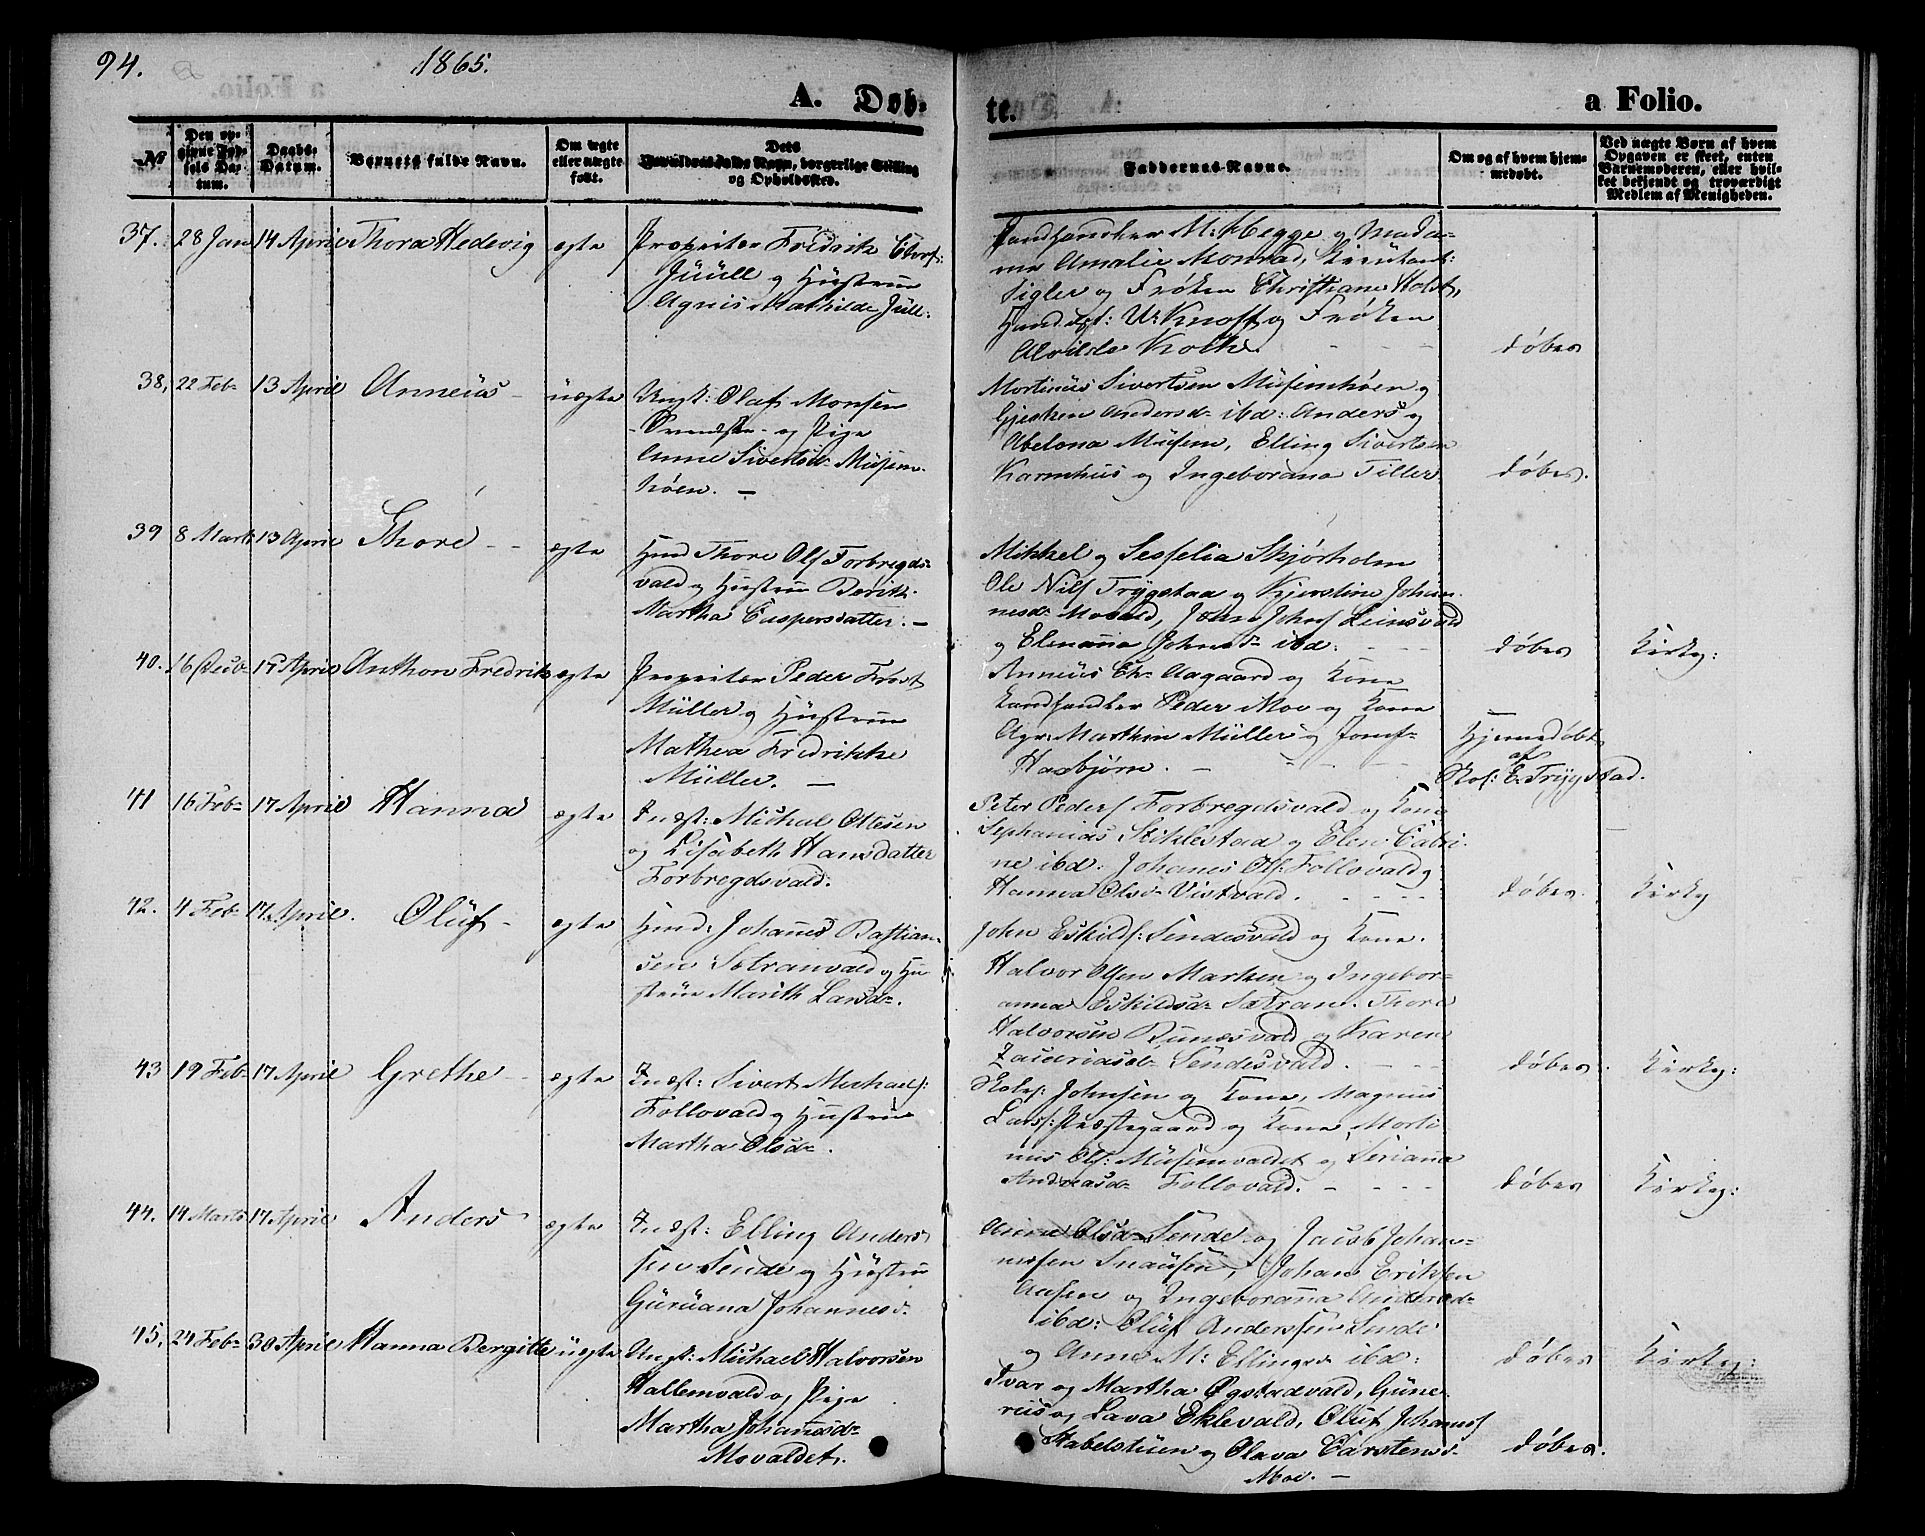 94.
1865.
A. Døb-
te.
a Folio.
№
Den op-
givne Fød-
sels Da-
tum.
Daabs-
Datum.
Barnets fulde Navn.
Om ægte
eller uægte
født.
Dets
Forældres fulde Navn, borgerlige Stilling
og Opholdssted.
Faddernes Navne.
Om og af hvem hjem-
medøbt.
Ved uægte Børn af hvem
Opgaven er skeet, enten
Barnemoderen, eller hvil-
ket bekjendt og troværdigt
Medlem af Menigheden.
37. 28 Jan 14 April Thora Hedevig ægte
Propritær Fredrik Chrf:
Jüüll og Hüstrue
Agnis Mathilde Jüll.
Landhandler M: Hegge og Mada-
me Amalie Monrad, Lieutant:
Sigler og Frøken Christiane Holst,
Handelsf: U: Knoff og Frøken
Alvilde Kolk.
døbes
38, 22 Feb 13 April Anneüs üægte
Ungk: Olaf Monsen
og Pige
Anne Sivertsd Müsem-
høen.
Mortinüs Sivertsen Müsemhøen og
Gjesken Andersd ibd: Anders og
Abelona Müsem, Elling Sivertsen
Karmhus og Ingeborana Tiller
døbes.
39 8 Marts 13 April Thore ægte
Hmd Thore Ols Forbregds-
vald og Hustrue Berith
Martha Caspersdatter.
Mikkel og Sesselia Skjørholm
Ole Nils Trygstad og Kjerstine Johan-
nesd Movald, John Johns Leinsvald
og Elenanna Johnsd ibd:
døbes Kirkg:
40. 16 April Anthon Fredrik ægte
Propritær Peder Frost
Müller og Hüstrue
Mathea Fredrikke
Müller.
Anneüs Ch Aagaard og Kone
Landhandler Peder Moe og Kone
Agr: Marthin Müller og Josef
Haxbjørn.
Hjemmedøbt
af
E. Trygstad.
41 16 Feb 17 April Hanna ægte
Indst: Michal Ollesen
og Lisabeth Hansdatter
Forbregdsvald.
Peter Peders Forbregdsvald og Kone
Sephanias Stiklestad og Elen Catri-
ne ibd: Johanes Ols: Follovald og
Hanna Olsd Vistvald.
døbes Kirkg
42. 4 Feb 17 April. Olüf ægte
Hmd: Johannes Bastian-
sen Sætranvald og Hu-
strüe Marith Larsd.
John Eskilds: Sendesvald og Kone.
Halvor Olsen Marken og Ingebor-
anna Eskildsd Sætran. Thore
Halvorsen og Karen
Zachriasd Sendesvald.
døbes Kirkg:
43 19 Feb 17 April Grethe ægte
Indst: Sivert Michaels:
Follovald og Hustrue
Martha Olsd.
Johnsen og Kone, Magnus
Lars: Præstegaard og Kone, Morti-
nus Ols: Müsemvaldet og Serianna
Andreasd Follovald.
døbes Kirkg:
44. 14 Marts 17 April Anders ægte
Indst: Elling Anders
sen Sende og Hüstrue
Gürüana Johannesd.
Anne Olsd Sende og Jacob Johan-
nesen Snaüsen, Johan Eriksen
Ausen og Ingeboranna Andersd
ibd: Olüf Anderssen Sende
og Anne M: Ellingsd ibd:
døbes Kirkg:
45, 24 Feb 30 April Hanna Bergitte üægte
Ungk: Michael Halvorsen
Hallemvald og Pige
Martha Johannesd
Movaldet.
Ivar og Martha Øgstadvald, Güne-
rius og Lava Eklevald, Olüf Johannes
Stabelstüen og Olava Carstensd
Moe.
døbes.